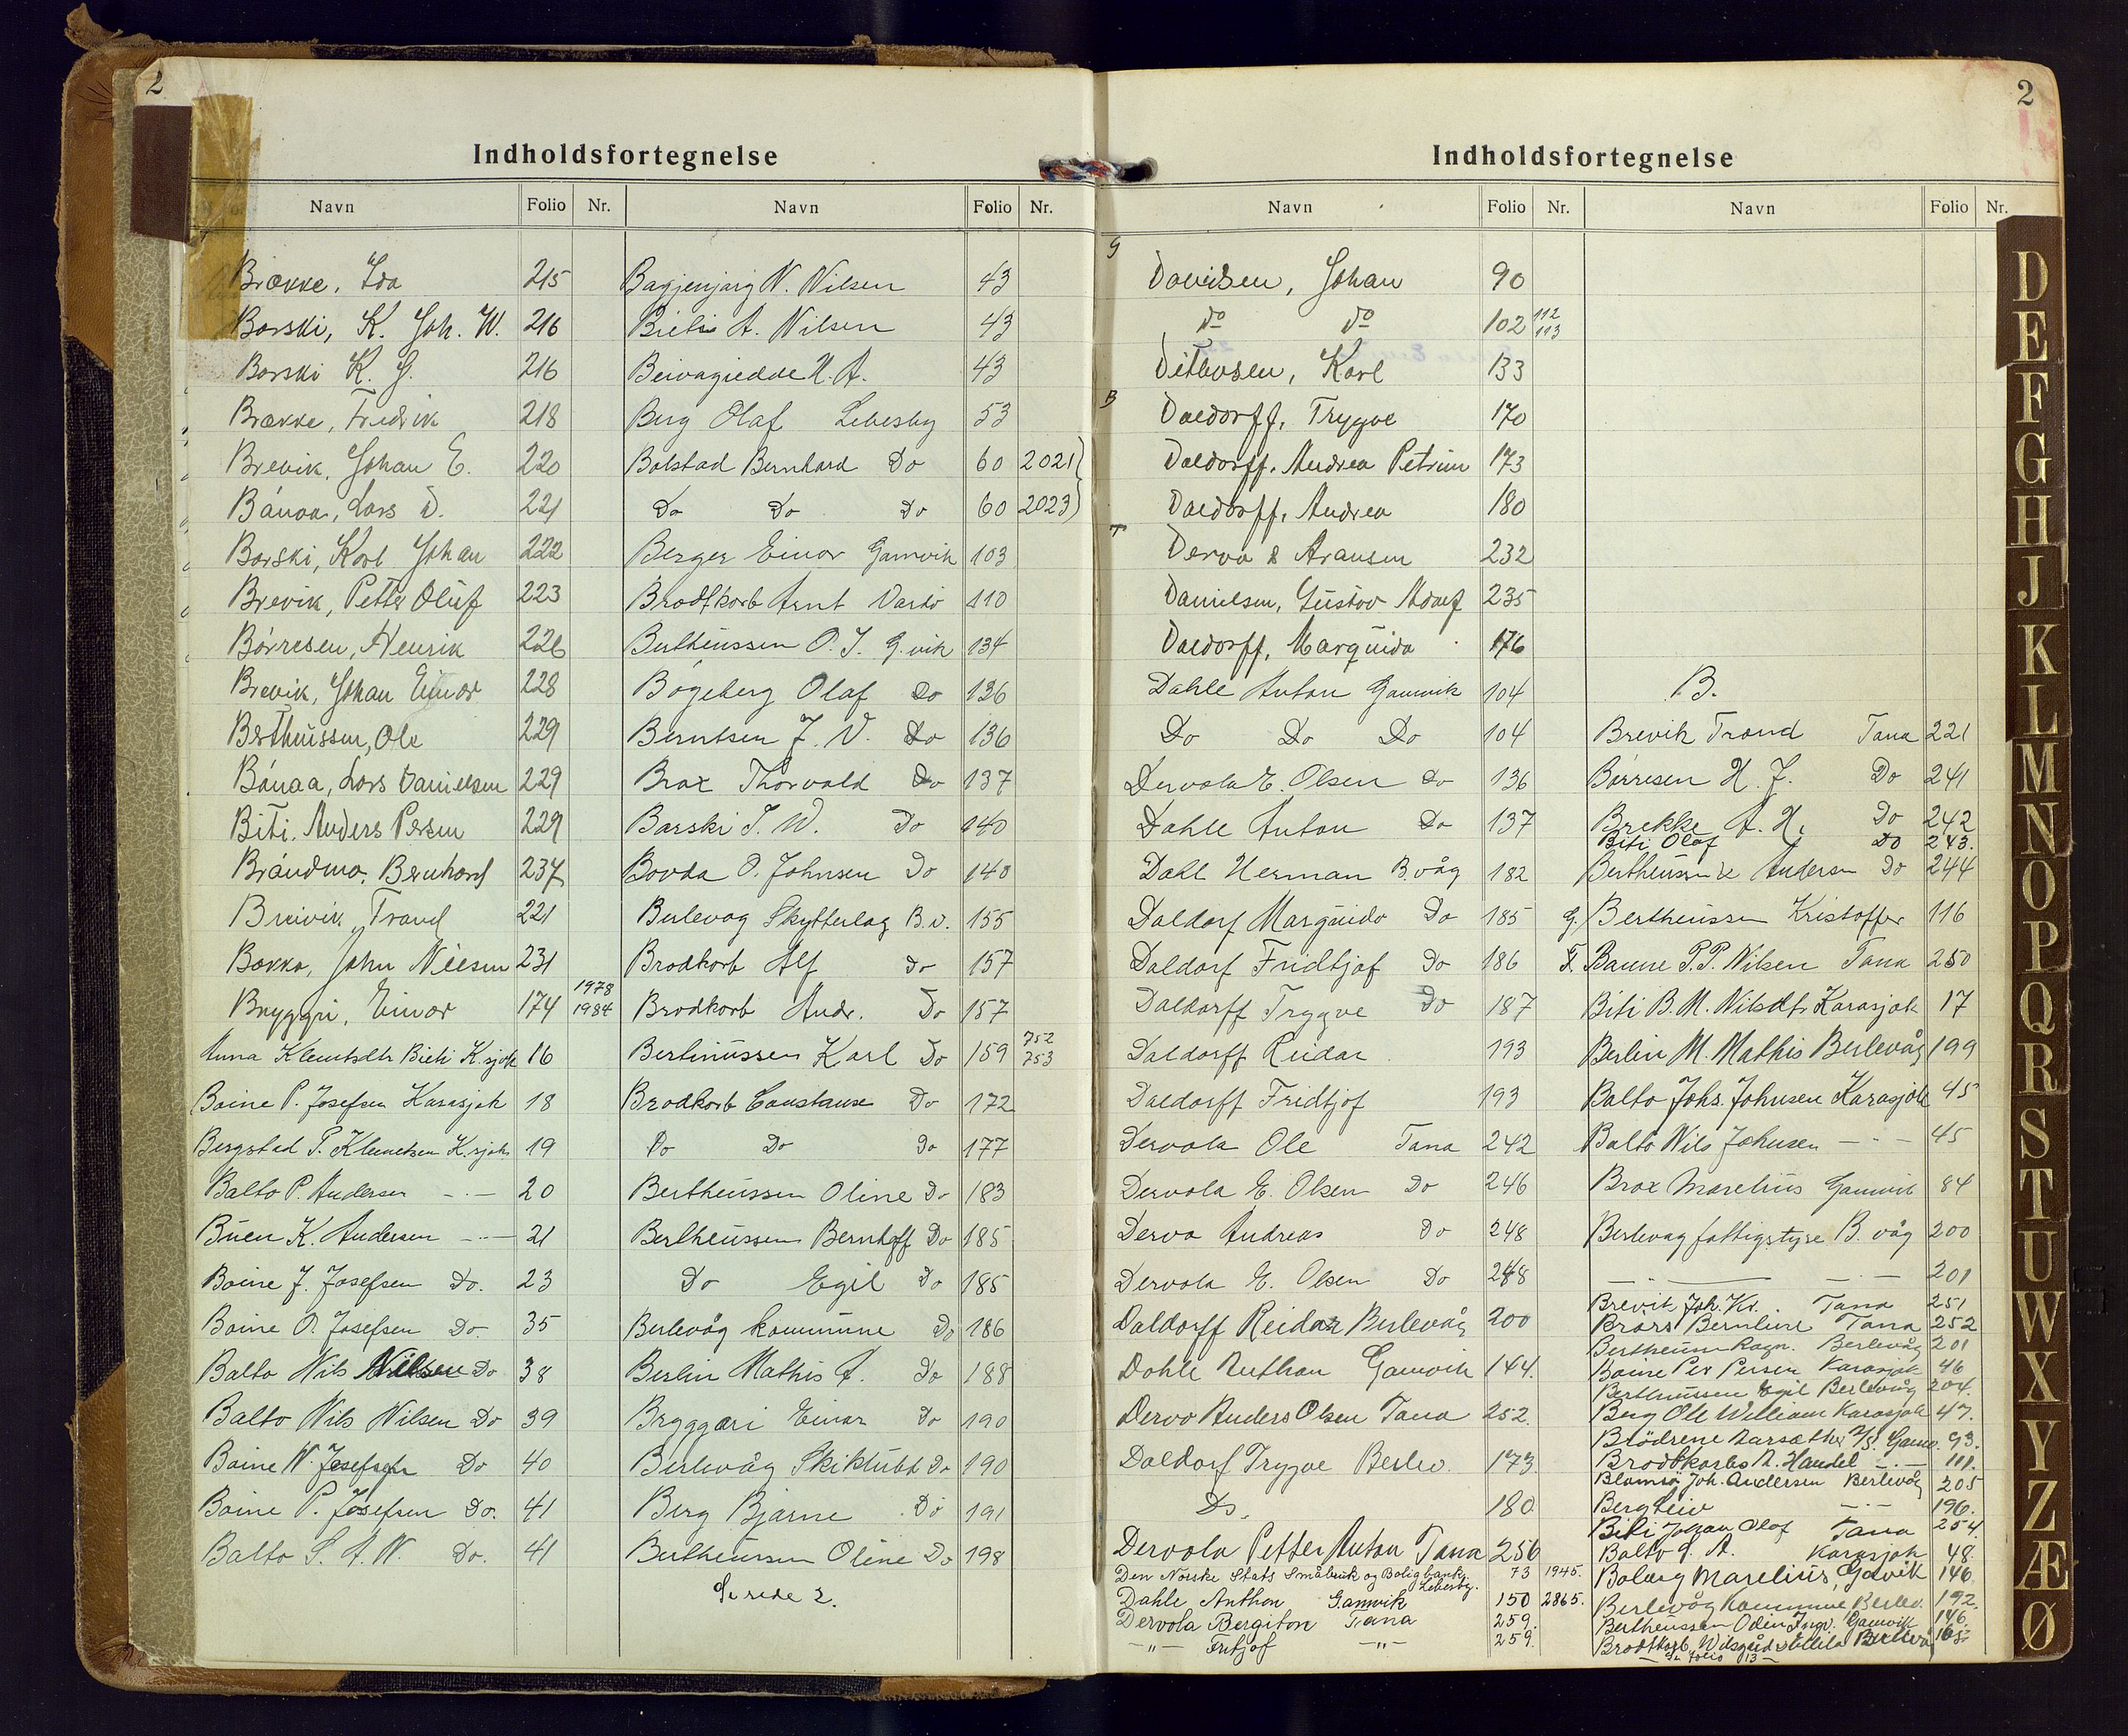 2
Indholdsfortegnelse
Navn Folio Nr. Navn Folio Nr.
Brække, Ida 215
Barski, K. Joh. W. 216
Barski K. G. 216
Brække, Fredrik 218
Brevik, Johan E. 220
Bánaa, Lars D. 221
Barski, Karl Johan 222
Brevik, Petter Oluf 223
Börresen, Henrik 226
Brevik, Johan Einar 228
Bertheüssen, Ole 229
Bánaa, Lars Danielsen 229
Biti. Anders Persen 229
Brándmo, Bernhard 237
Breivik, Trand 221
Bakka, John Nilsen 231
Bryggri, Einar 174 1978 1984
Anna Klemtsdtr Bieti K.sjok 16
Baine P. Josefsen Karasjok 18
Bergstad P. Klemetsen K.sjok 19
Balto P. Andersen -"- 20
Büen K. Andersen -"- 21
Baine J. Josefsen Do. 23
Baine O. Josefsen Do. 35
Balto Nils Nilsen Do 38
Balto Nils Nilsen Do 39
Baine N. Josefsen Do 40
Baine P. Josefsen Do. 41
Balto S. A. N. Do. 41
Bagjenjarg N. Nilsen 43
Bieti A. Nilsen 43
Beivagiedde N. A. 43
Berg Olaf Lebesby 53
Bolstad Bernhard Do 60 2021)
Do Do Do 60 2023)
Berger Einar Gamvik 103
Brodtkorb Arnt Vardö 110
Bertheüssen O. J. G.vik 134
Bögeberg Olaf Do 136
Berntsen J. V. Do 136
Brax Thorvald Do 137
Barski J. W. Do 140
Bovda O. Johnsen Do 140
Berlevag Skytterlag B.v. 155
Brodkorb Alf Do 157
Brodkorb Andr. Do 157
Bertinüssen Karl Do 159 752 753
Brodkorb Constanse Do 172
Do Do Do 177
Bertheüssen Oline Do 183
Bertheüssen Bernhoff Do 185
Do Egil Do 185
Berlevåg kommune Do 186
Berlin Mathis A. Do 188
Bryggari Einar Do 190
Berlevåg Skiklubb Do 190
Berg Bjarne Do 191
Bertheüssen Oline Do 198
Se side 2.
2
Indholdsfortegnelse
Navn Folio Nr. Navn Folio Nr.
G
Davidsen, Johan 90
do do 102 112 113
Ditlevsen, Karl 133
B
Daldorff, Trygve 170
Daldorff, Andrea Petrine 173
Daldorff, Andrea 180
T
Derva & Aransen 232
Danielsen, Güstav Adolf 235
Daldorff, Marqüida 176
Dahle Anton Gamvik 104
Do Do Do 104
Dervola E. Olsen Do 136
Dahle Anton Do 137
Dahl Herman B.våg 182
Daldorf Margüido Do 185
Daldorf Fridtjof Do 186
Daldorff Trygve Do 187
Daldorff Reidar 193
Daldorff Fridtjof 193
Dervola Ole Tana 242
Dervola E. Olsen Do 246
Derva Andreas Do 248
Dervola E. Olsen Do 248
Daldorff Reidar Berlevåg 200
Dahle Anthon Gamvik 144.
Dervo Anders Olsen Tana 252.
Daldorf Trygve Berlev. 173.
Do. 180
Dervola Petter Anton Tana 256
Den Norske Stats Småbruk og Boligbank, Lebesby. 73 1945.
Dahle Anthon Gamvik 150 2865.
Dervola Bergiton Tana 259.
-"- Fritjof -"- 259.
B.
Brevik Trand Tana 221
Börresen H. J. Do 241
Brekke A. H. Do 242
Biti Olaf Do 243.
Bertheüssen & Andersen Do 244
G. Bertheüssen Kristoffer 116
T. Banne P.P. Nilsen Tana 250
Biti B. M. Nilsdtr Karasjok 17
Berlin M. Mathis Berlevåg 199
Balto Johs. Johnsen Karasjok 45
Balto Nils Johnsen -"- 45
Brox Marelius Gamvik 84
Berlevag fattigstyre B. våg 200
-"- -"- 201
Brevik Joh. Kr. Tana 251
Brars Bernline Tana 252
Bertheüsen Ragn. Berlevåg 201
Baine Per Persen Karasjok 46
Bertheüssen Egil Berlevåg 204.
Berg Ole William Karasjok 47.
Brödrene Aarsæther A/S. Gamv. 93.
Brodtkorbs A. Handel -"- 111.
Blomsö Joh. Andersen Berlevåg 205
Berg Leiv -"- 196.
Biti Johan Olaf Tana 254.
Balto S. A. Karasjok 48.
Boberg Marelius, Gamvik 146.
Berlevåg Kommune Berlev. 192.
Bertheüssen Odin Ingv. Gamvik 146.
Brodtkorb, Berlevå
Se folio 13
D
E
F
G
H
J
K
L
M
N
O
P
Q
R
S
T
U
W
X
Y
Z
Æ
Ø